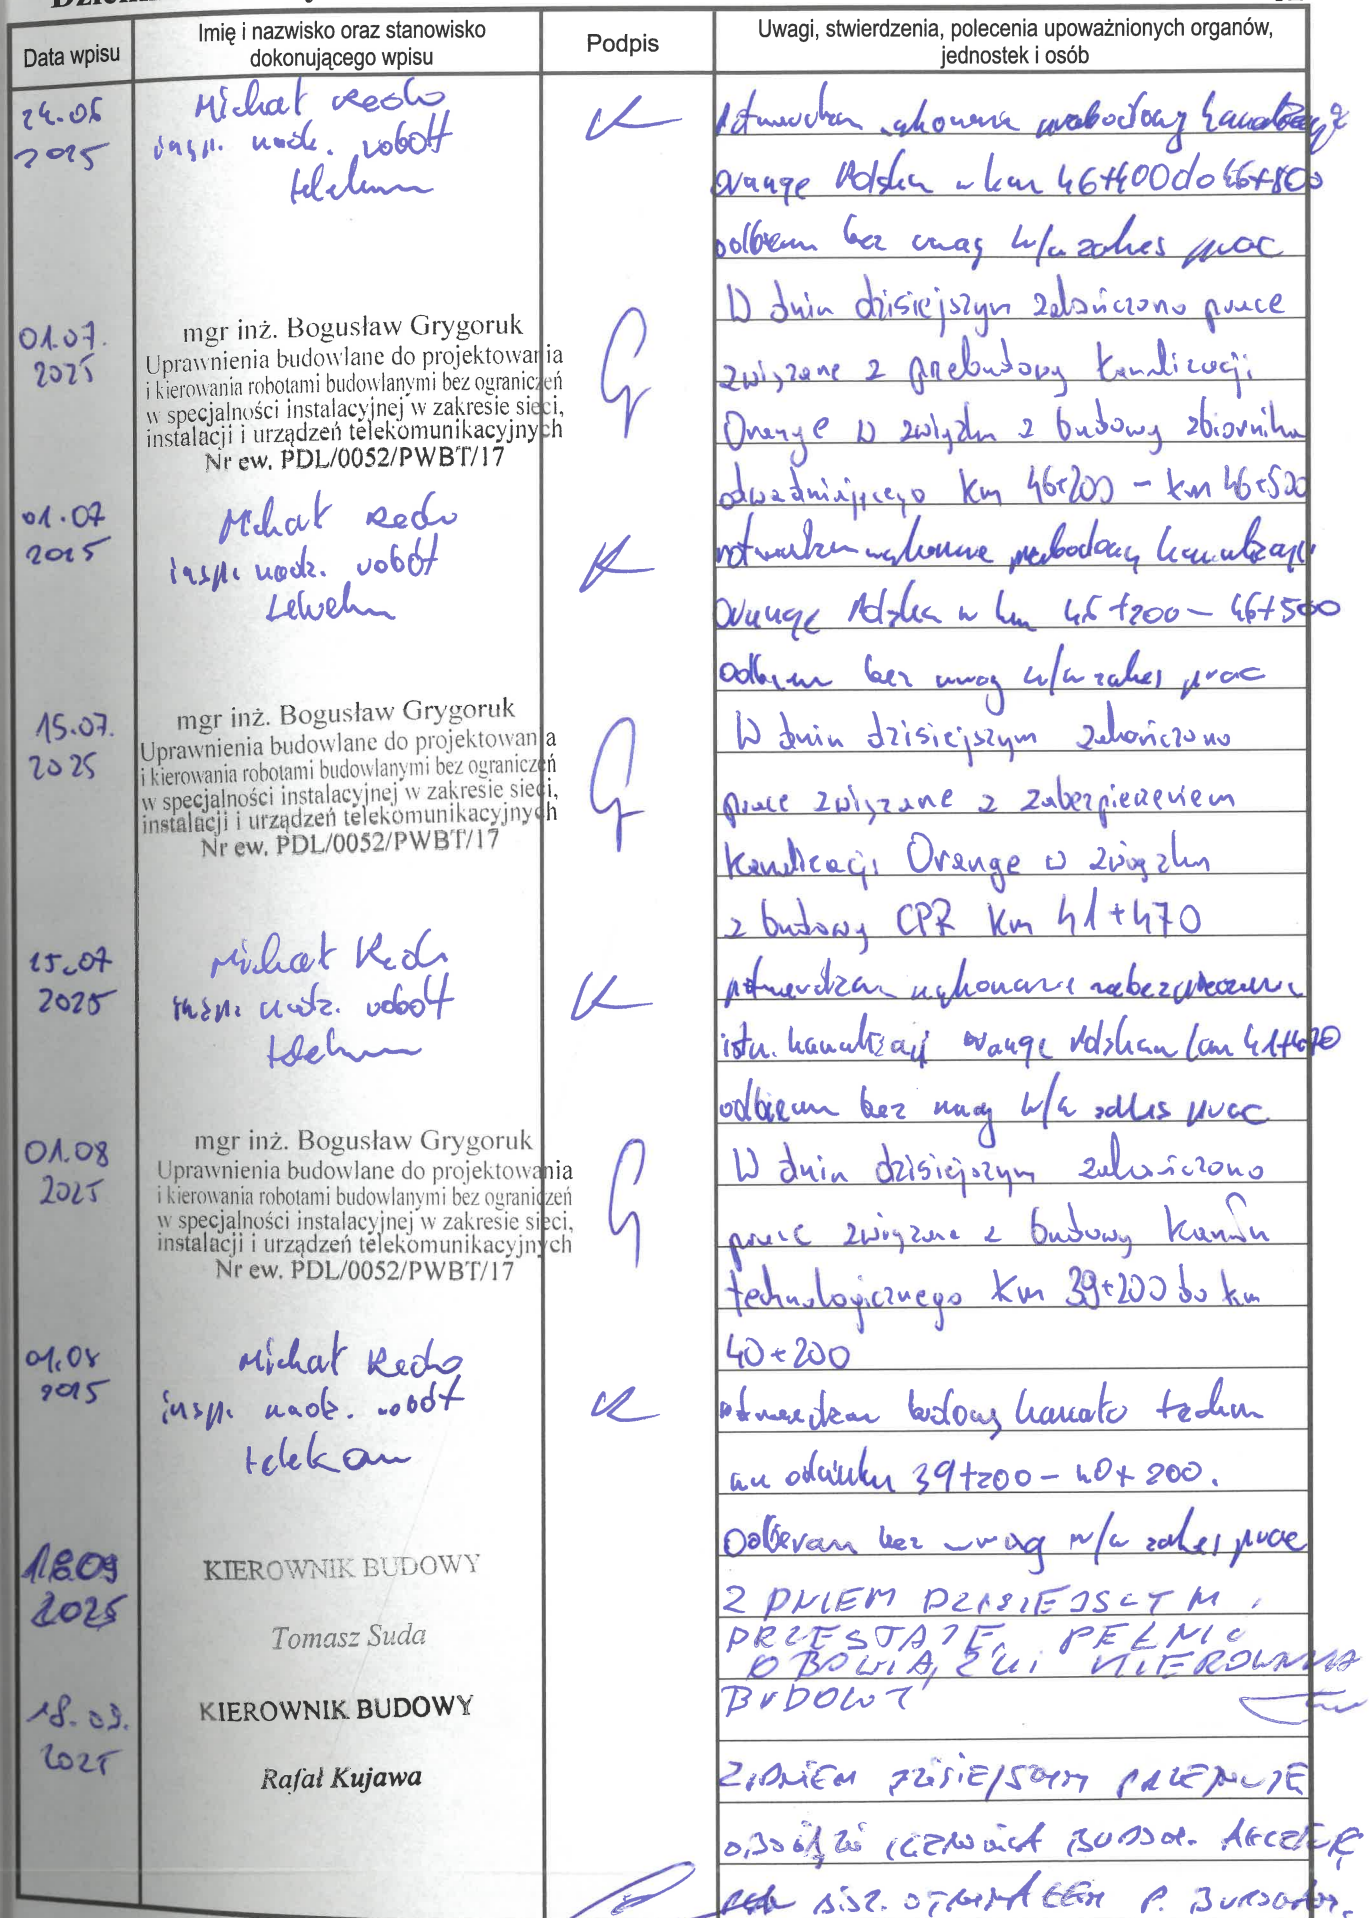 Data wpisu
Imię i nazwisko oraz stanowisko
dokonującego wpisu
Podpis
Uwagi, stwierdzenia, polecenia upoważnionych organów,
jednostek i osób
24.06
2025
Michał
insp. nadz. robót
telekom
Orange Polska w km 46+400 do 46+800
odbieram bez uwag w/w zakres prac
01.07.
2025
mgr inż. Bogusław Grygoruk
Uprawnienia budowlane do projektowania
i kierowania robotami budowlanymi bez ograniczeń
w specjalności instalacyjnej w zakresie sieci,
instalacji i urządzeń telekomunikacyjnych
Nr ew. PDL/0052/PWBT/17
W dniu dzisiejszym zakończono prace
związane z przebudową kanalizacji
Orange w związku z budową zbiornika
odwadniającego km 46+200 - km 46+500
01.07
2025
Michał
insp. nadz. robót
telekom
potwierdzam wykonanie przebudowy kanalizacji
Orange Polska w km 46+200 - 46+500
odbieram bez uwag w/w zakres prac
15.07.
2025
mgr inż. Bogusław Grygoruk
Uprawnienia budowlane do projektowania
i kierowania robotami budowlanymi bez ograniczeń
w specjalności instalacyjnej w zakresie sieci,
instalacji i urządzeń telekomunikacyjnych
Nr ew. PDL/0052/PWBT/17
W dniu dzisiejszym zakończono
prace związane z zabezpieczeniem
kanalizacji Orange w związku
z budową CPR km 41+470
15.07
2025
Michał
insp. nadz. robót
telekom
potwierdzam wykonanie zabezpieczenia
istn. kanalizacji Orange Polska w km 41+470
odbieram bez uwag w/w zakres prac
01.08
2025
mgr inż. Bogusław Grygoruk
Uprawnienia budowlane do projektowania
i kierowania robotami budowlanymi bez ograniczeń
w specjalności instalacyjnej w zakresie sieci,
instalacji i urządzeń telekomunikacyjnych
Nr ew. PDL/0052/PWBT/17
W dniu dzisiejszym zakończono
prace związane z budową kanału
technologicznego km 39+200 do km
40+200
01.08
2025
Michał
insp. nadz. robót
telekom
potwierdzam budowę kanału techn
na odcinku 39+200 - 40+200.
Odbieram bez uwag w/w zakres prac
18.09
2025
KIEROWNIK BUDOWY
Tomasz Suda
Z DNIEM DZISIEJSZYM
PRZESTAJĘ PEŁNIĆ
OBOWIĄZKI KIEROWNIKA
BUDOWY
18.09.
2025
KIEROWNIK BUDOWY
Rafał Kujawa
Z DNIEM DZISIEJSZYM PRZEJMUJĘ